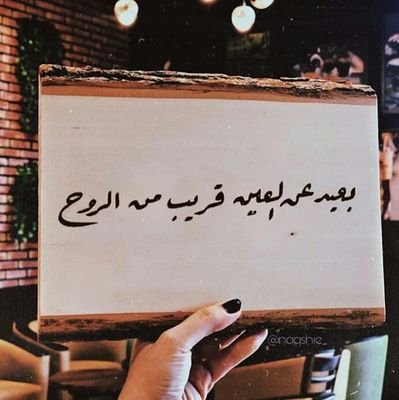 بعيد عن العين قريب من الروح
@naqshie_